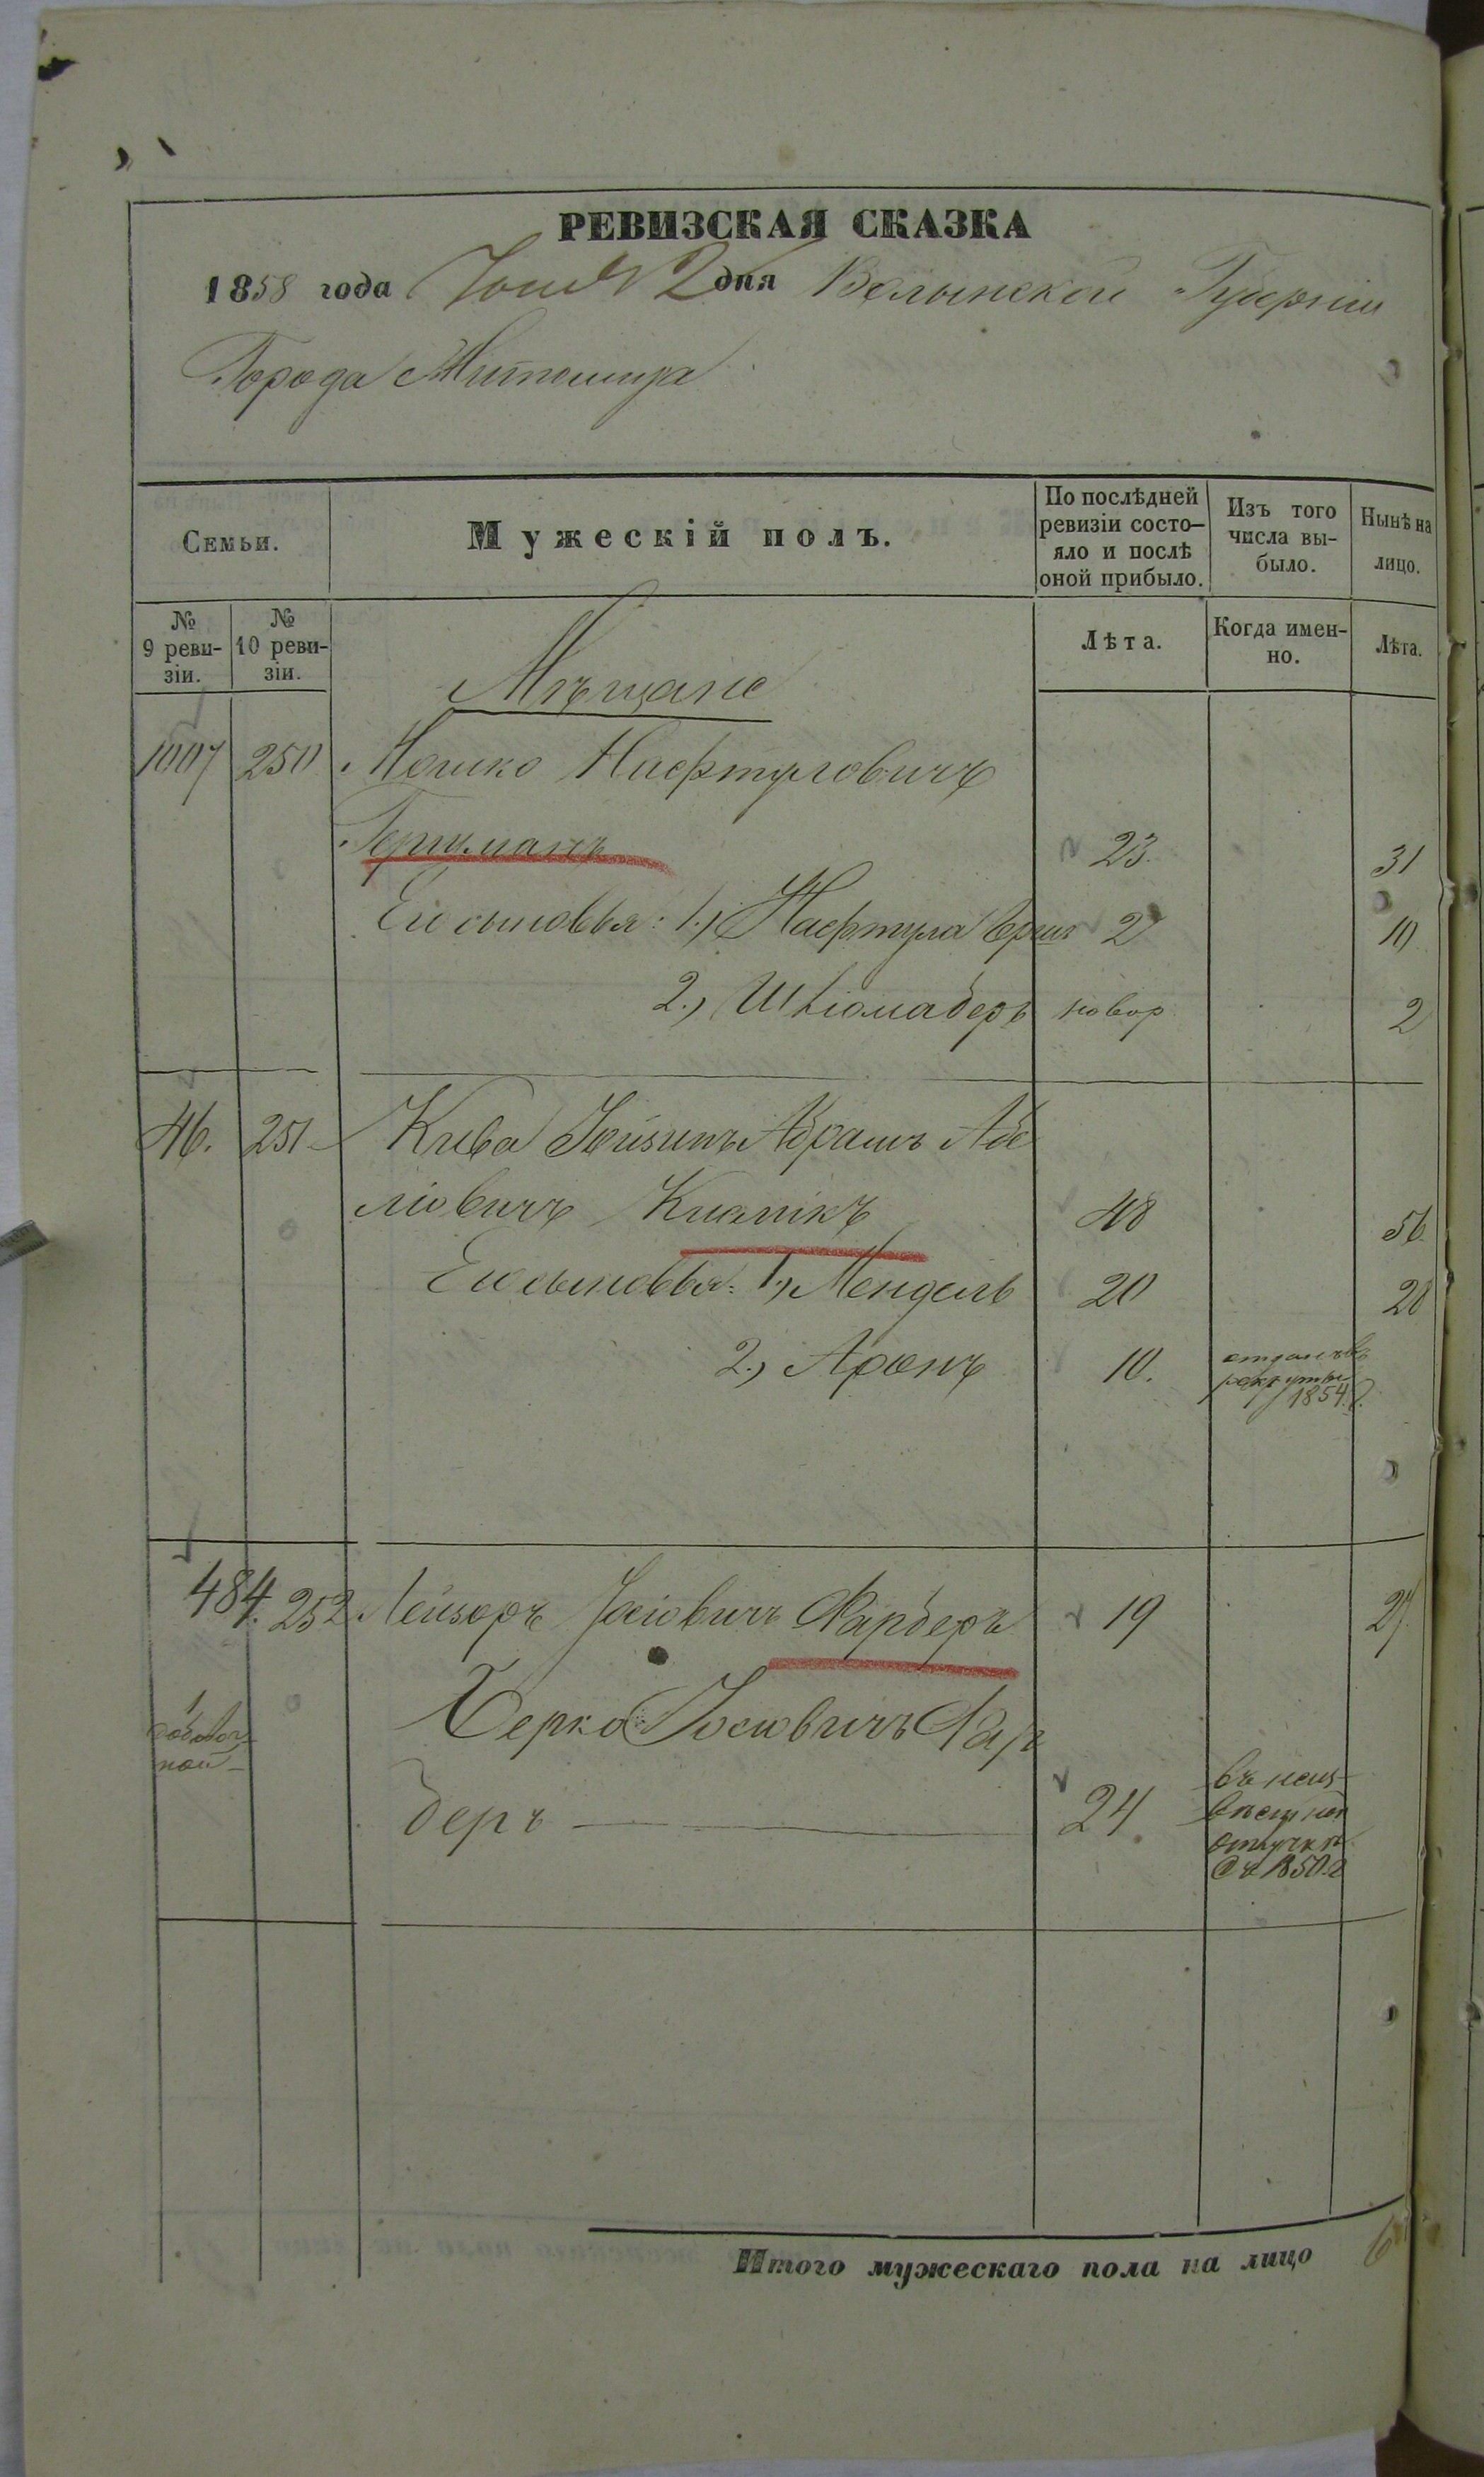 РЕВИЗСКАЯ СКАЗКА
1858 года Іюня 2 дня Волынской Губерніи
Города Житомира
Семьи.
Мужескій полъ.
По послѣдней ревизіи состо-яло и послѣ оной прибыло.
Изъ того числа вы-было.
Нынѣ на лицо.
№ 9 реви-зіи.
№ 10 реви-зіи.
Лѣта.
Когда имен-но.
Лѣта.
Мѣщане
1007 250 Мошко Нафтуловичъ
23. 31
Его сыновья: 1.) Нафтула Герш 2 10
2.) Шліомаберъ новор 2
46. 251 Кива Абрамъ Абе
ліовичъ 48 56
Его сыновья: 1.) Мендель 20 28
2.) Аронъ 10. отданъ въ
рекруты
1854 г.
484. 252 Лейзоръ Іосіовичъ Фарберъ 19 27
1
Берко Іосіовичъ Фар
беръ 24 въ неиз-
вѣстной
отлучкѣ
съ 1850 г
Итого мужескаго пола на лицо 6